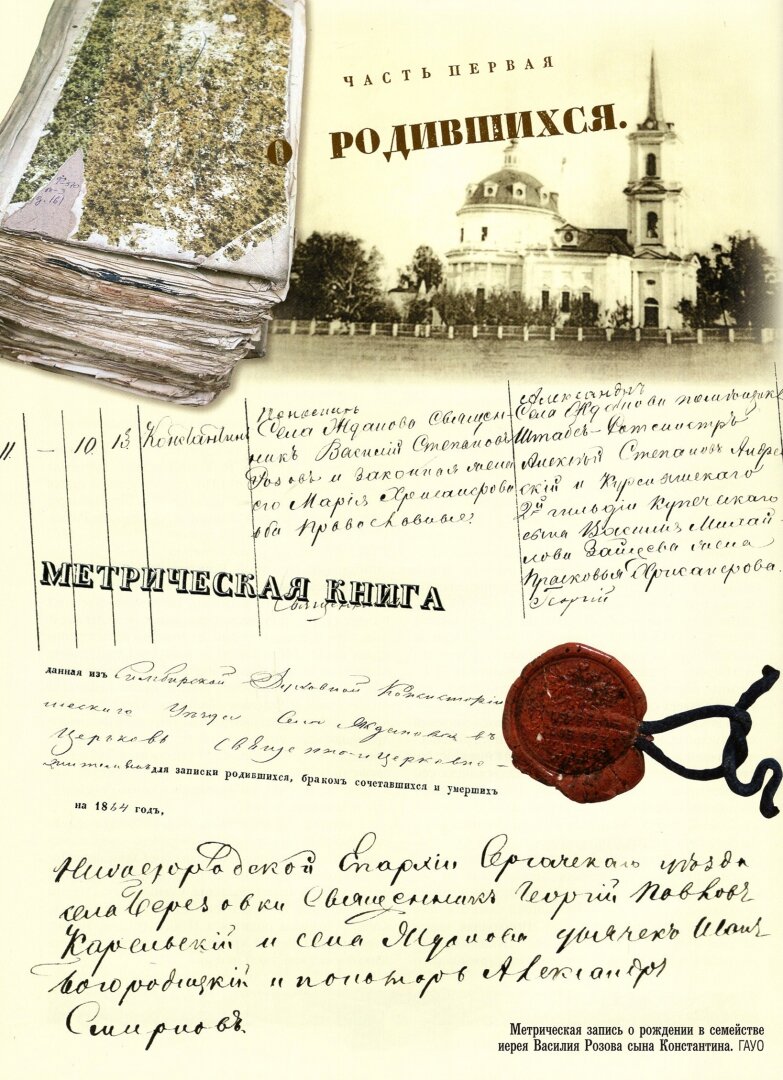 ЧАСТЬ ПЕРВАЯ
О РОДИВШИХСЯ.
11. – 10. 13. Константинъ
Села Жданова Священ-
никъ Василій Степановъ
Розовъ и законная жена
его Марія Хрисанфова
оба Православные.
Александръ
Села Жданова помѣщикъ
Штабсъ-Ротмистръ
Алексѣй Степановъ
скій и Курмышскаго
2й гильдіи Купеческаго
сына Василія Михай-
лова Зайцева жена
Прасковья Хрисанфова.
Георгій
МЕТРИЧЕСКАЯ КНИГА
Священникъ
данная изъ Симбирской Духовной Консисторіи
Уѣзда Села Жданова въ
Церковь Священно-церковно-
служителямъ для записки родившихся, бракомъ сочетавшихся и умершихъ
на 1864 годъ,
Нижегородской Епархіи Сергачскаго уѣзда
села Березовки Священникъ Георгій Павловъ
Карельскій и села Жданова дьячекъ
Богородицкій и пономарь Александръ
Смирновъ.
Метрическая запись о рождении в семействе
иерея Василия Розова сына Константина. ГАУО